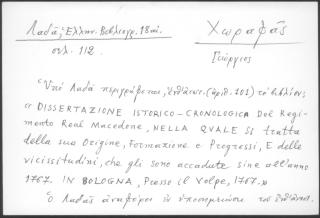 Λαδᾶ, Ἑλλην. Βιβλιογρ. 18 αἰ.
σελ. 112.
Χωραφᾶς
Γεώργιος
Ὑπὸ Λαδᾶ περιγράφεται, (ἀριθ. 101) τὸ βιβλίον:
« DISSERTAZIONE ISTORICO-CRONOLOGICA Del Regi-
mento Real Macedone, NELLA QUALE si tratta
della sua Origine, Formazione e Progressi, E delle
vicissitudini, che gli sono accadute sino all'anno
1767. IN BOLOGNA, Presso il Volpe, 1767.»
Ὁ Λαδᾶς ἀναφέρει ἐν ὑποσημειώσει τοῦ